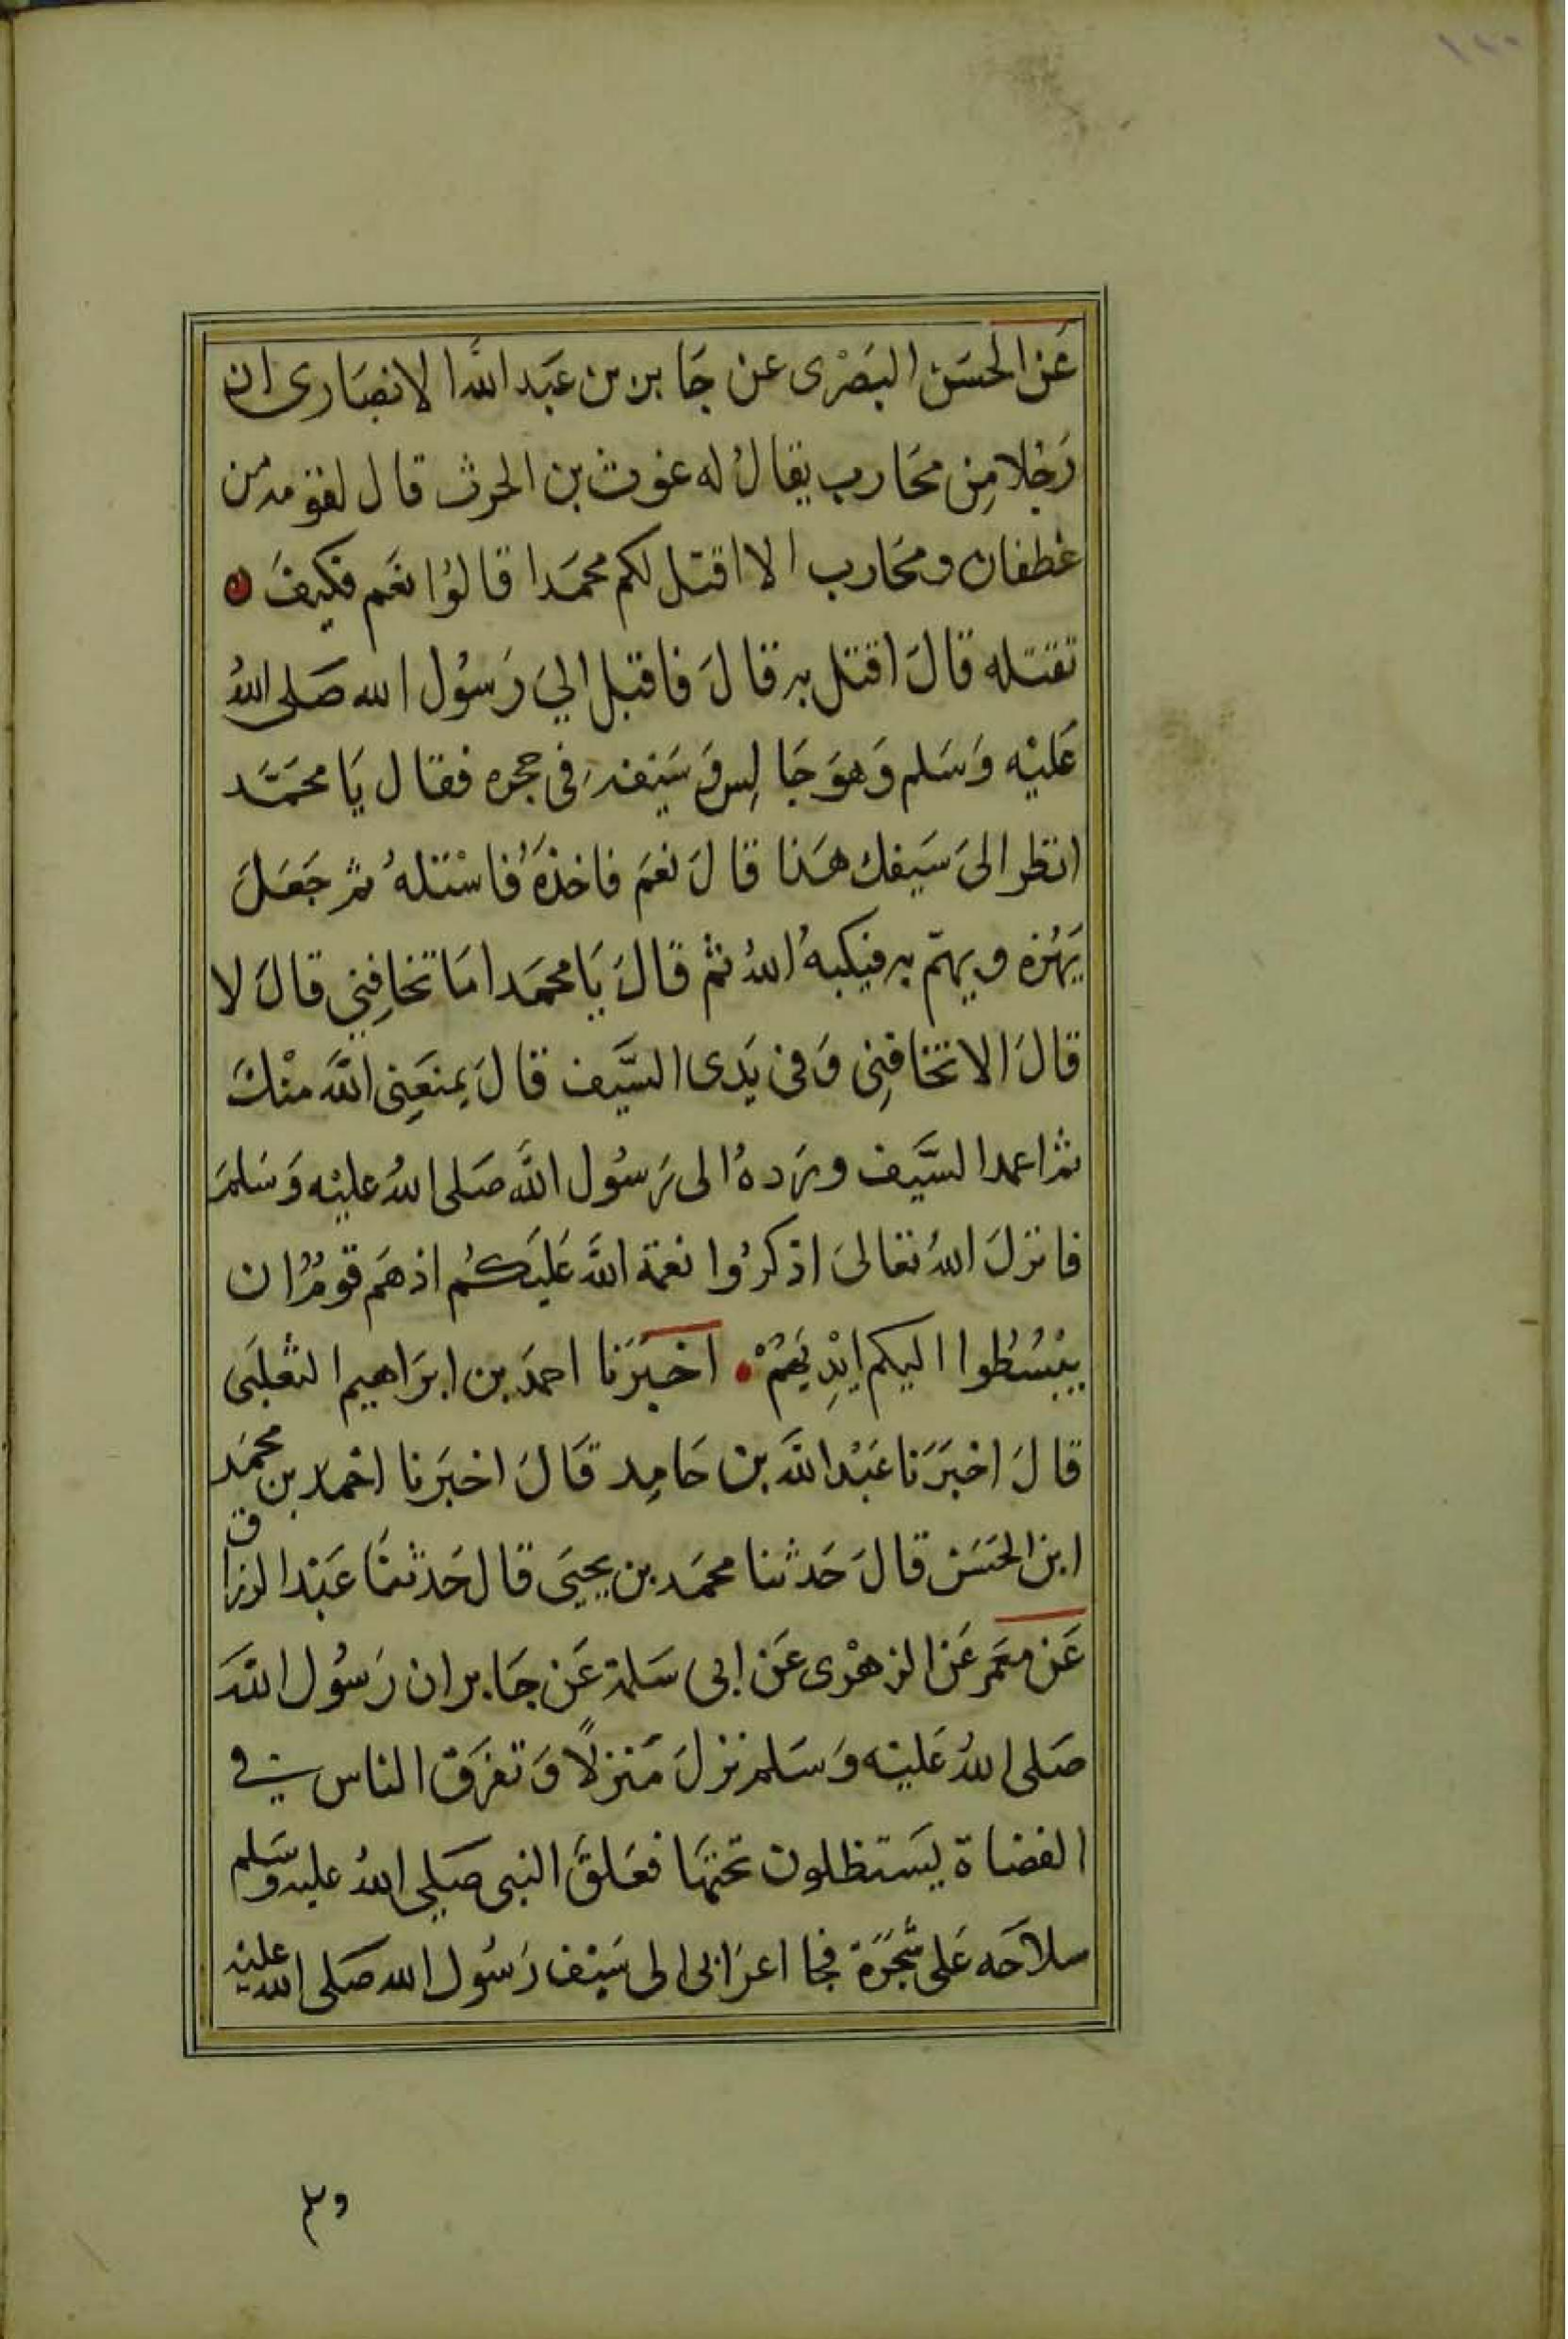 عَن الحسَن البَصْرى عن جَابر بن عَبد اللَّه الانصَارى ان
رَجُلا مِن محَارب يقالُ له غوث بن الحرث قال لقومه من
غطفان ومحَارب الا اقتل لكم محمَدا قالوُا نعَم فكيفَ
تقتله قالَ اقتل به قالَ فاقبل اليَ رَسوُل الله صَلى اللهُ
عَليْه وَسَلم وَهوَ جَالِس وَسَيفه فى حجره فقال يَا محمَّد
انظر الىَ سَيفك هَذا قالَ نعَم فاخذهُ فاسْتله ثم جَعَلَ
يَهُزه ويهمّ به فيكبهُ اللهُ ثم قالَ يَا محمَد امَا تخافِني قالَ لا
قالَ الا تخافِنِى وَفى يَدى السَّيف قالَ يمنعَنِى اللَّه مِنْكَ
ثم اعمد السَّيف وردهُ الى رَسوُل اللَّه صَلى اللهُ عليْه وَسَلمَ
فانزلَ اللهُ تعَالىَ اذكرُوا نعمة اللَّه عَليَكمُ اذ همَ قومُ ان
يبْسُطوا اليكم ايْدِيَهُمْ اخبَرَنا احمدَ بن ابرَاهيم الثعلبَى
قالَ اخبَرَنا عَبْد اللَّه بن حَامِد قَالَ اخبرَنا احْمد بن محمَد
ابن الحسَن قالَ حَدثنا محمَد بن يحيىَ قال حَدثنا عَبْد الرزاق
عَن معَمر عَن الزهْرى عَن ابى سَلمة عَن جَابر ان رَسوُل اللَّه
صَلى اللهُ عَليْه وَسَلم نزلَ مَنزلًا وَتفرَق الناس في
الفضاة يَستظلون تحتهَا فعَلقَ النبى صَلي اللهُ عليه وسَلم
سلاحَه عَلى شَجَرَة فجا اعرَابى الى سَيْف رَسوُل الله صَلى الله عليْه
وسلم